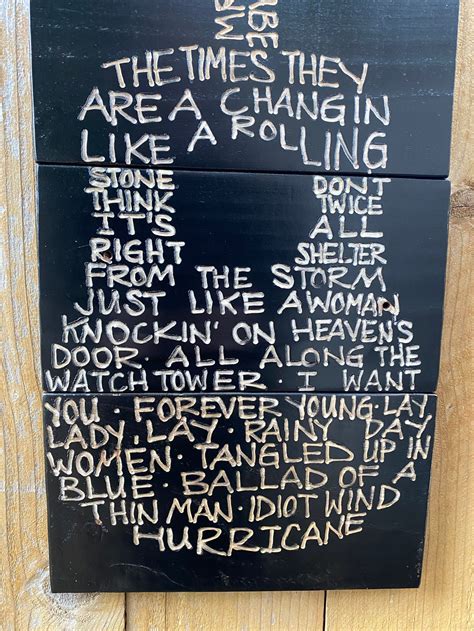 THE TIMES THEY
ARE A CHANGIN
LIKE A ROLLING
STONE DON'T
THINK TWICE
IT'S ALL
RIGHT SHELTER
FROM THE STORM
JUST LIKE A WOMAN
KNOCKIN' ON HEAVEN'S
DOOR · ALL ALONG THE
WATCH TOWER · I WANT
YOU · FOREVER YOUNG · LAY,
LADY, LAY · RAINY DAY
WOMEN · TANGLED UP IN
BLUE · BALLAD OF A
THIN MAN · IDIOT WIND
HURRICANE